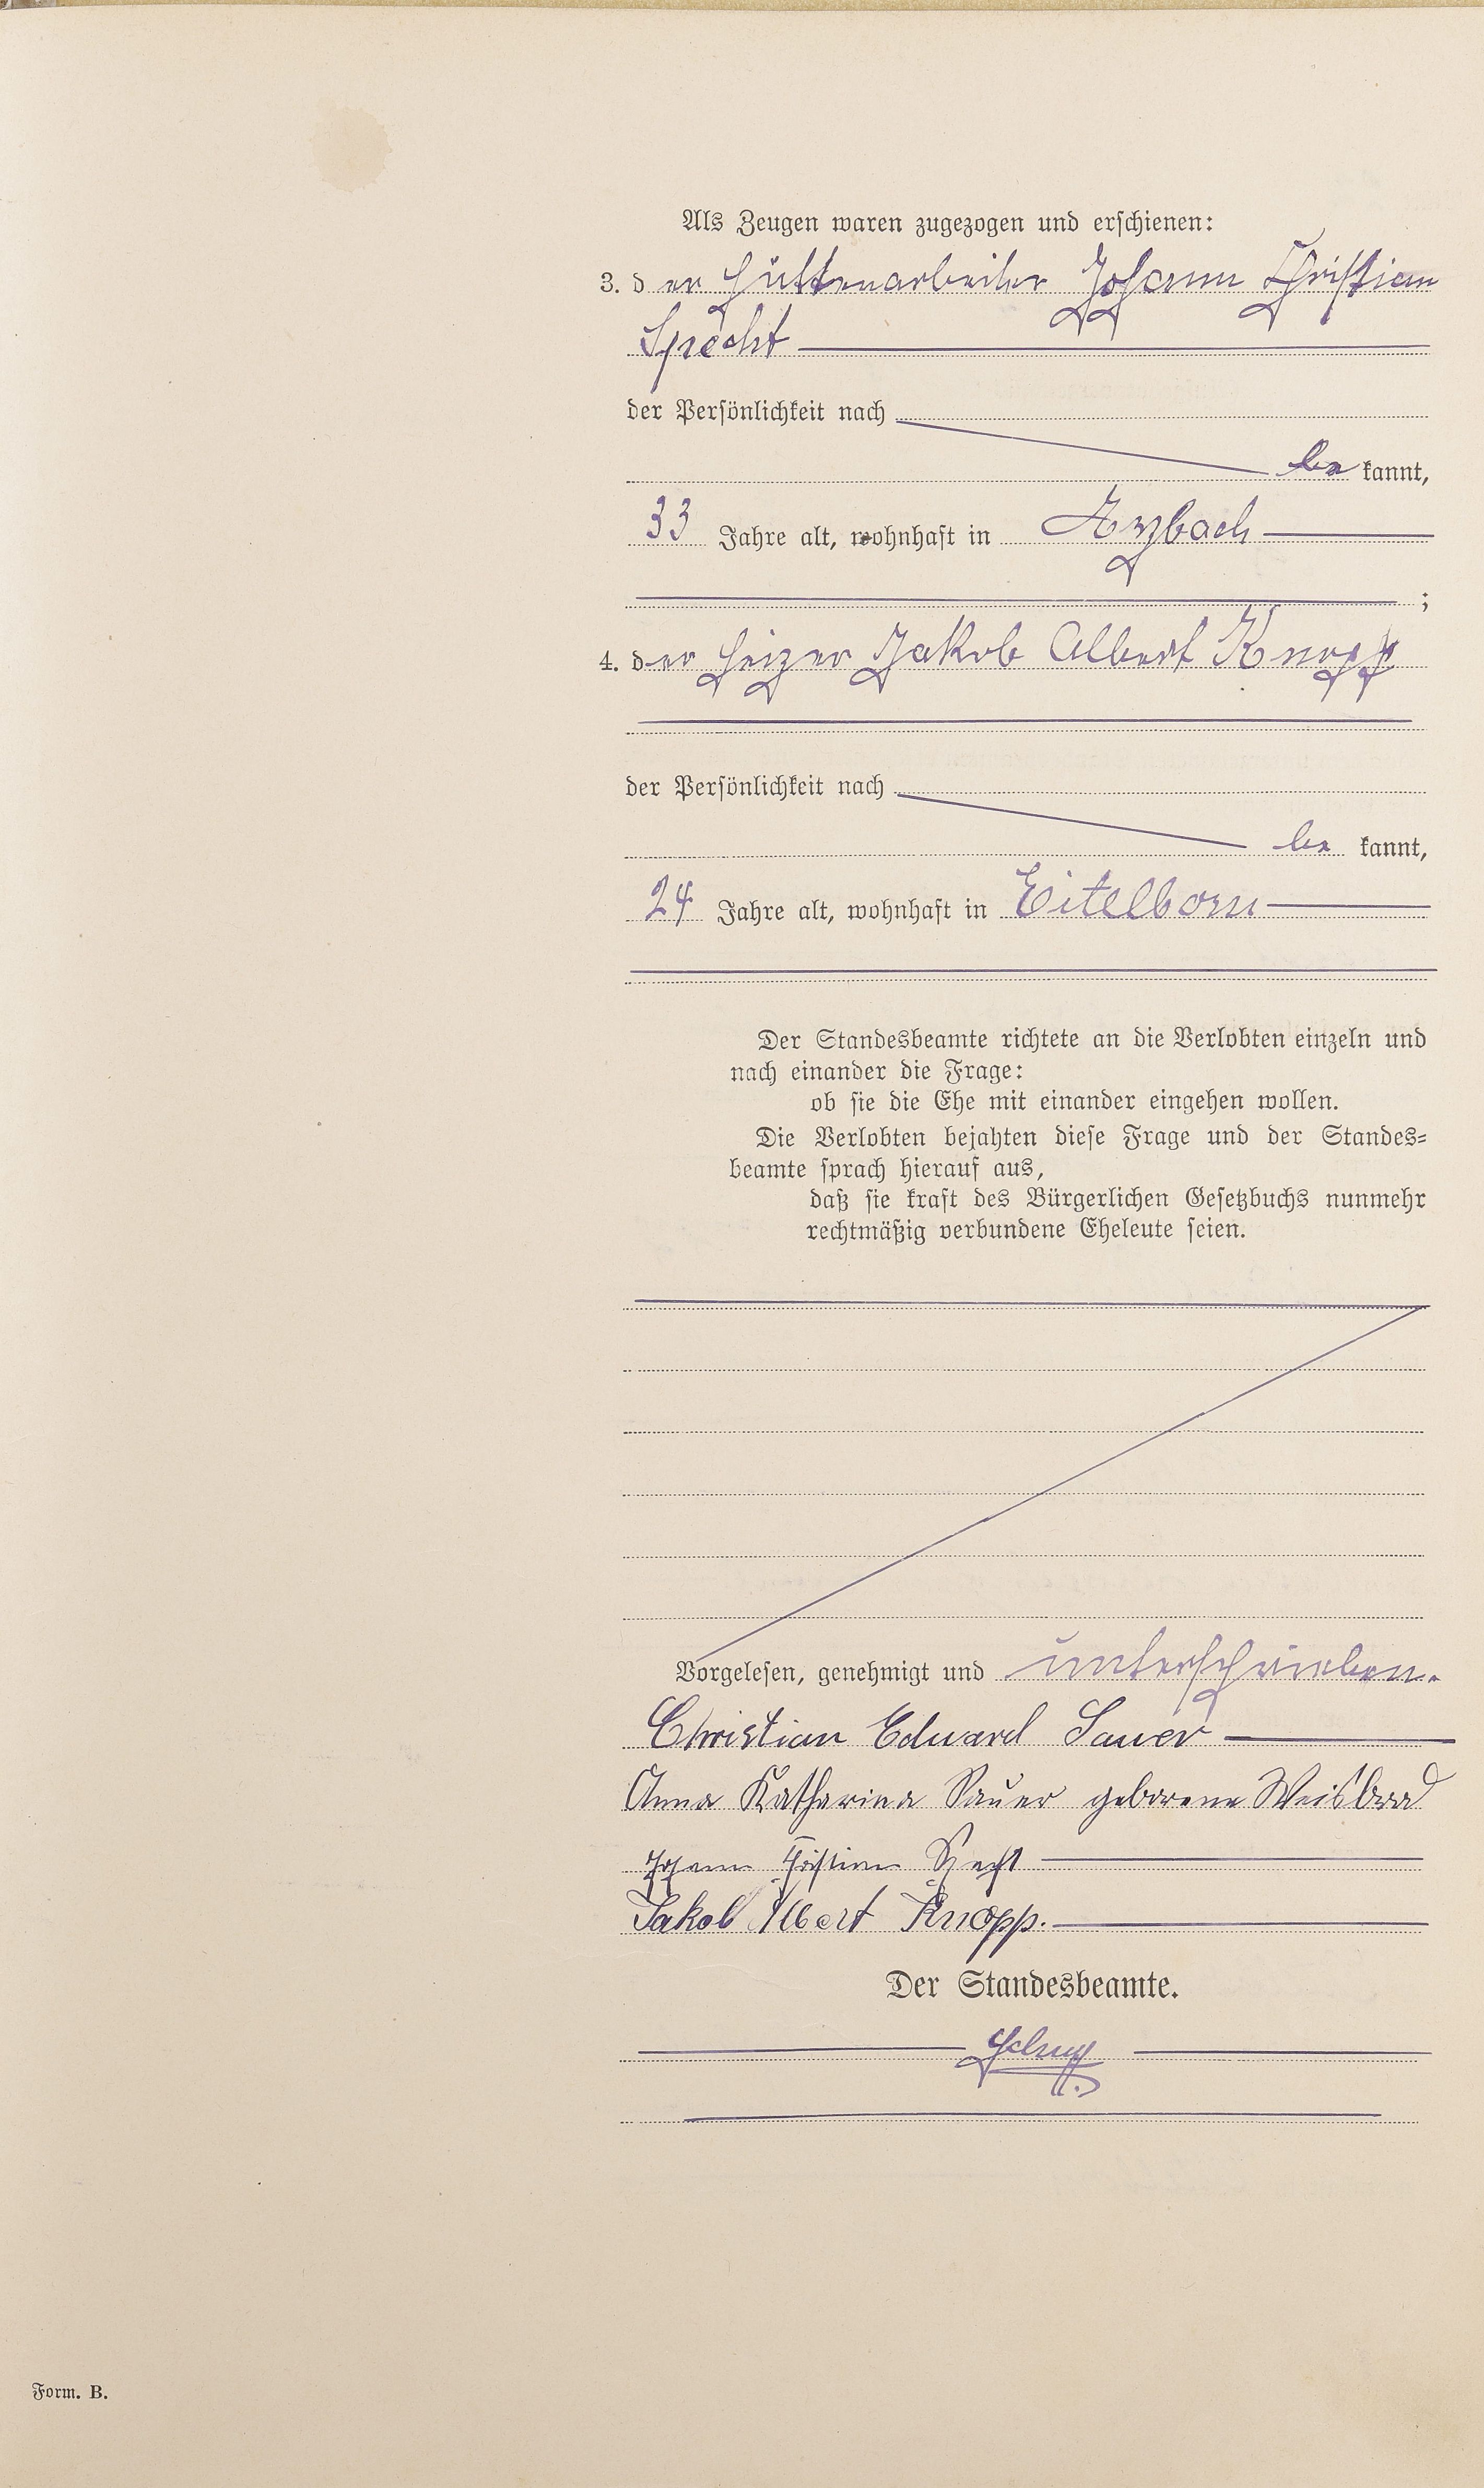 Als Zeugen waren zugezogen und erschienen:
3. der Hüttenarbeiter Johann Christian
Specht
der Persönlichkeit nach
bekannt,
33 Jahre alt, wohnhaft in Arzbach
;
4. der Heizer Jakob Albert Knopp
der Persönlichkeit nach
bekannt,
24 Jahre alt, wohnhaft in Eitelborn
Der Standesbeamte richtete an die Verlobten einzeln und
nach einander die Frage:
ob sie die Ehe mit einander eingehen wollen.
Die Verlobten bejahten diese Frage und der Standes-
beamte sprach hierauf aus,
daß sie kraft des Bürgerlichen Gesetzbuchs nunmehr
rechtmäßig verbundene Eheleute seien.
Vorgelesen, genehmigt und unterschrieben.
Christian Eduard Sauer
Anna Katharina Sauer geborene Weisbrod
Johann Christian Specht
Jakob Albert Knopp.
Der Standesbeamte.
Form. B.